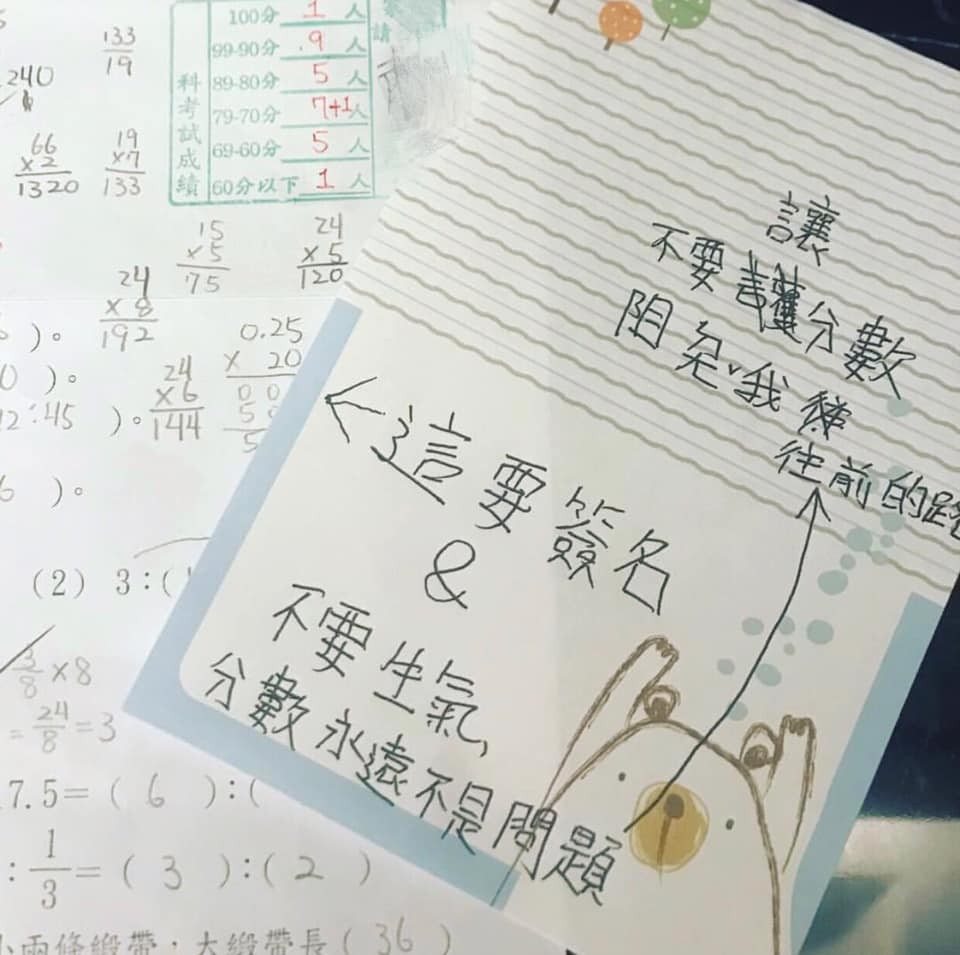 133
19
240
66
x2
1320
19
x7
133
15
x5
75
24
x5
120
24
x8
192
0.25
x 20
0 0
24
x6
144
科考試成績
100分 1 人
99-90分 9 人
89-80分 5 人
79-70分 7+1人
69-60分 5 人
60分以下 1 人
請
)。
0 )。
2:45 )。
6 )。
(2) 3:(
3/8 x8
= 24/8 =3
7.5=( 6 ):(
: 1/3 =( 3 ):( 2 )
小兩條緞帶,大緞帶長(36)
讓
不要護分數
阻 我
往前的路
←這要簽名
&
不要生氣,
分數永遠不是問題